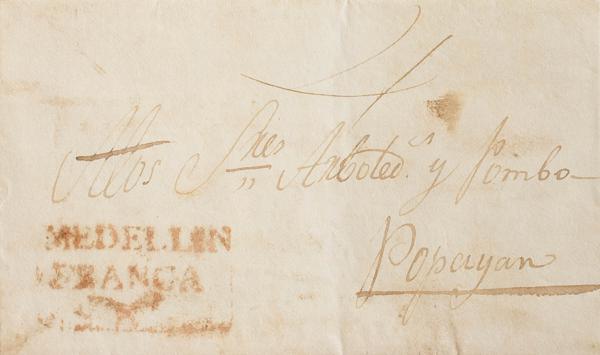 Sres Arboleds y Pombo
Popayan
MEDELLIN
FRANCA